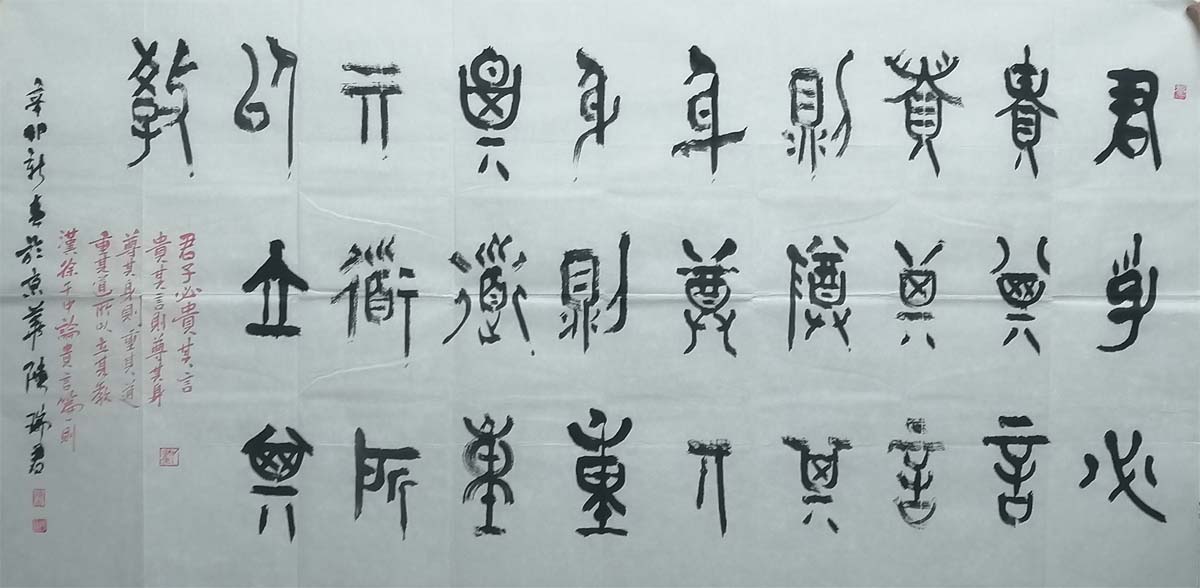 君子必
貴其言
貴其言
則尊其
身尊其
身則重
其道重
其道所
以立其
教
君子必貴其言
貴其言則尊其身
尊其身則重其道
重其道所以立其教
漢徐干中論貴言篇一則
辛卯新春於京華